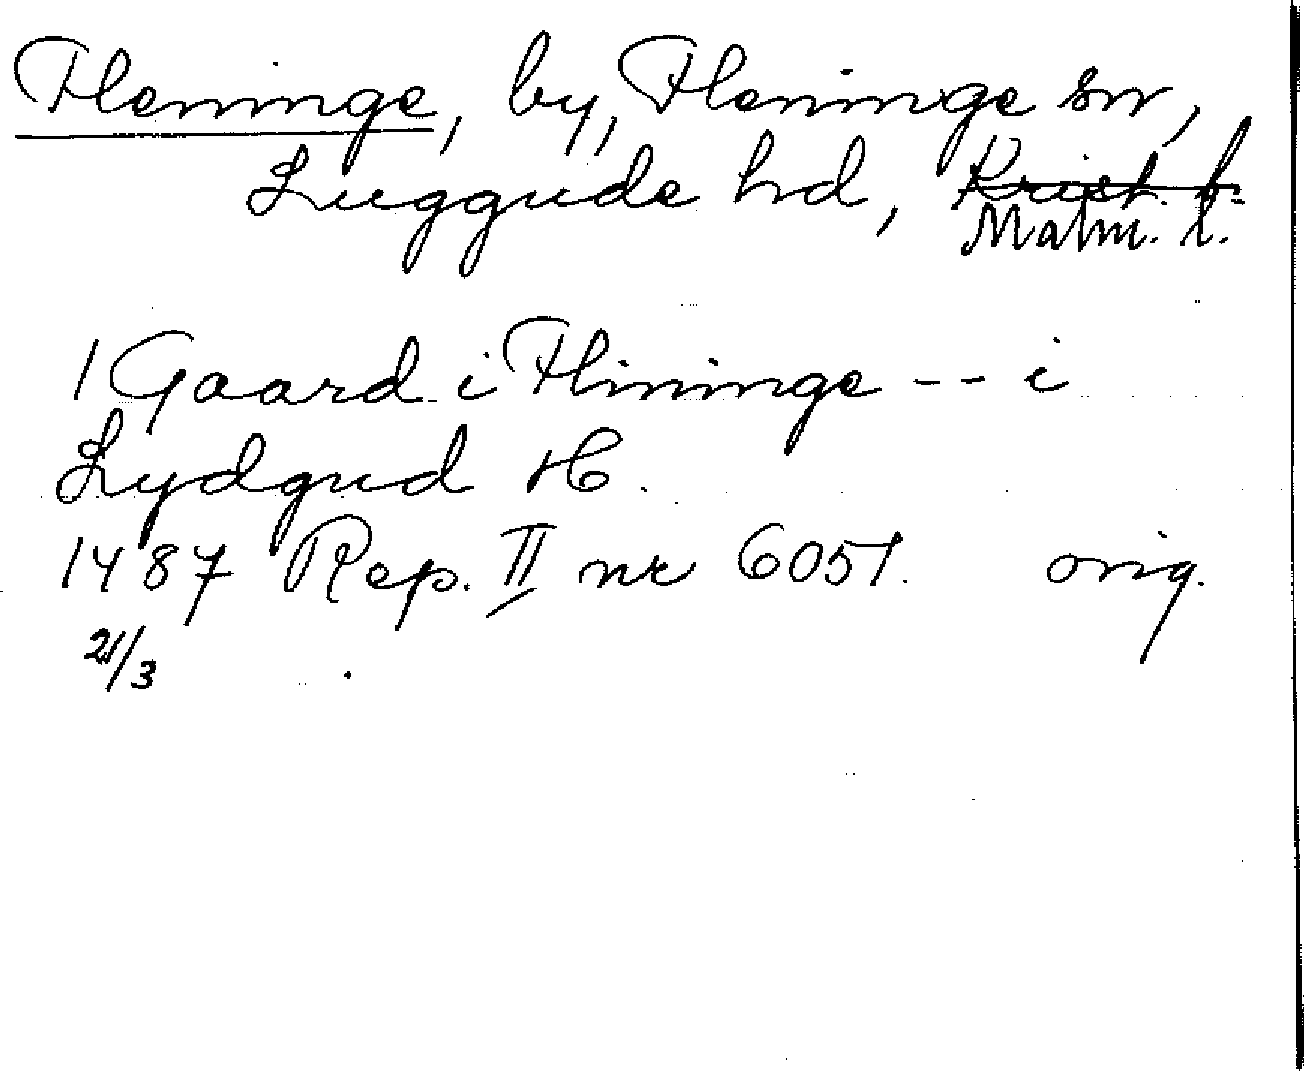 Fleninge, by, Fleninge sn,
Luggude hd, Krist. l.
Malm. l.
1 Gaard i Flininge -- i
Lydgud H.
1487 Rep. II nr 6051. orig.
21/3